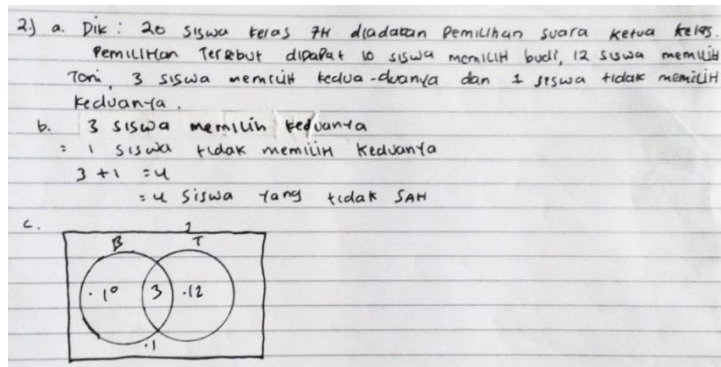 2.) a. Dik : 20 siswa kelas 7H diadakan Pemilihan suara ketua kelas.
Pemilihan Tersebut didapat 10 siswa memilih budi, 12 siswa memilih
Toni, 3 siswa memilih kedua-duanya dan 1 siswa tidak memilih
keduanya.
b. 3 siswa memilih keduanya
= 1 siswa tidak memilih keduanya
3 + 1 = 4
= 4 siswa yang tidak SAH
c.
B T
. 10 3 .12
.1